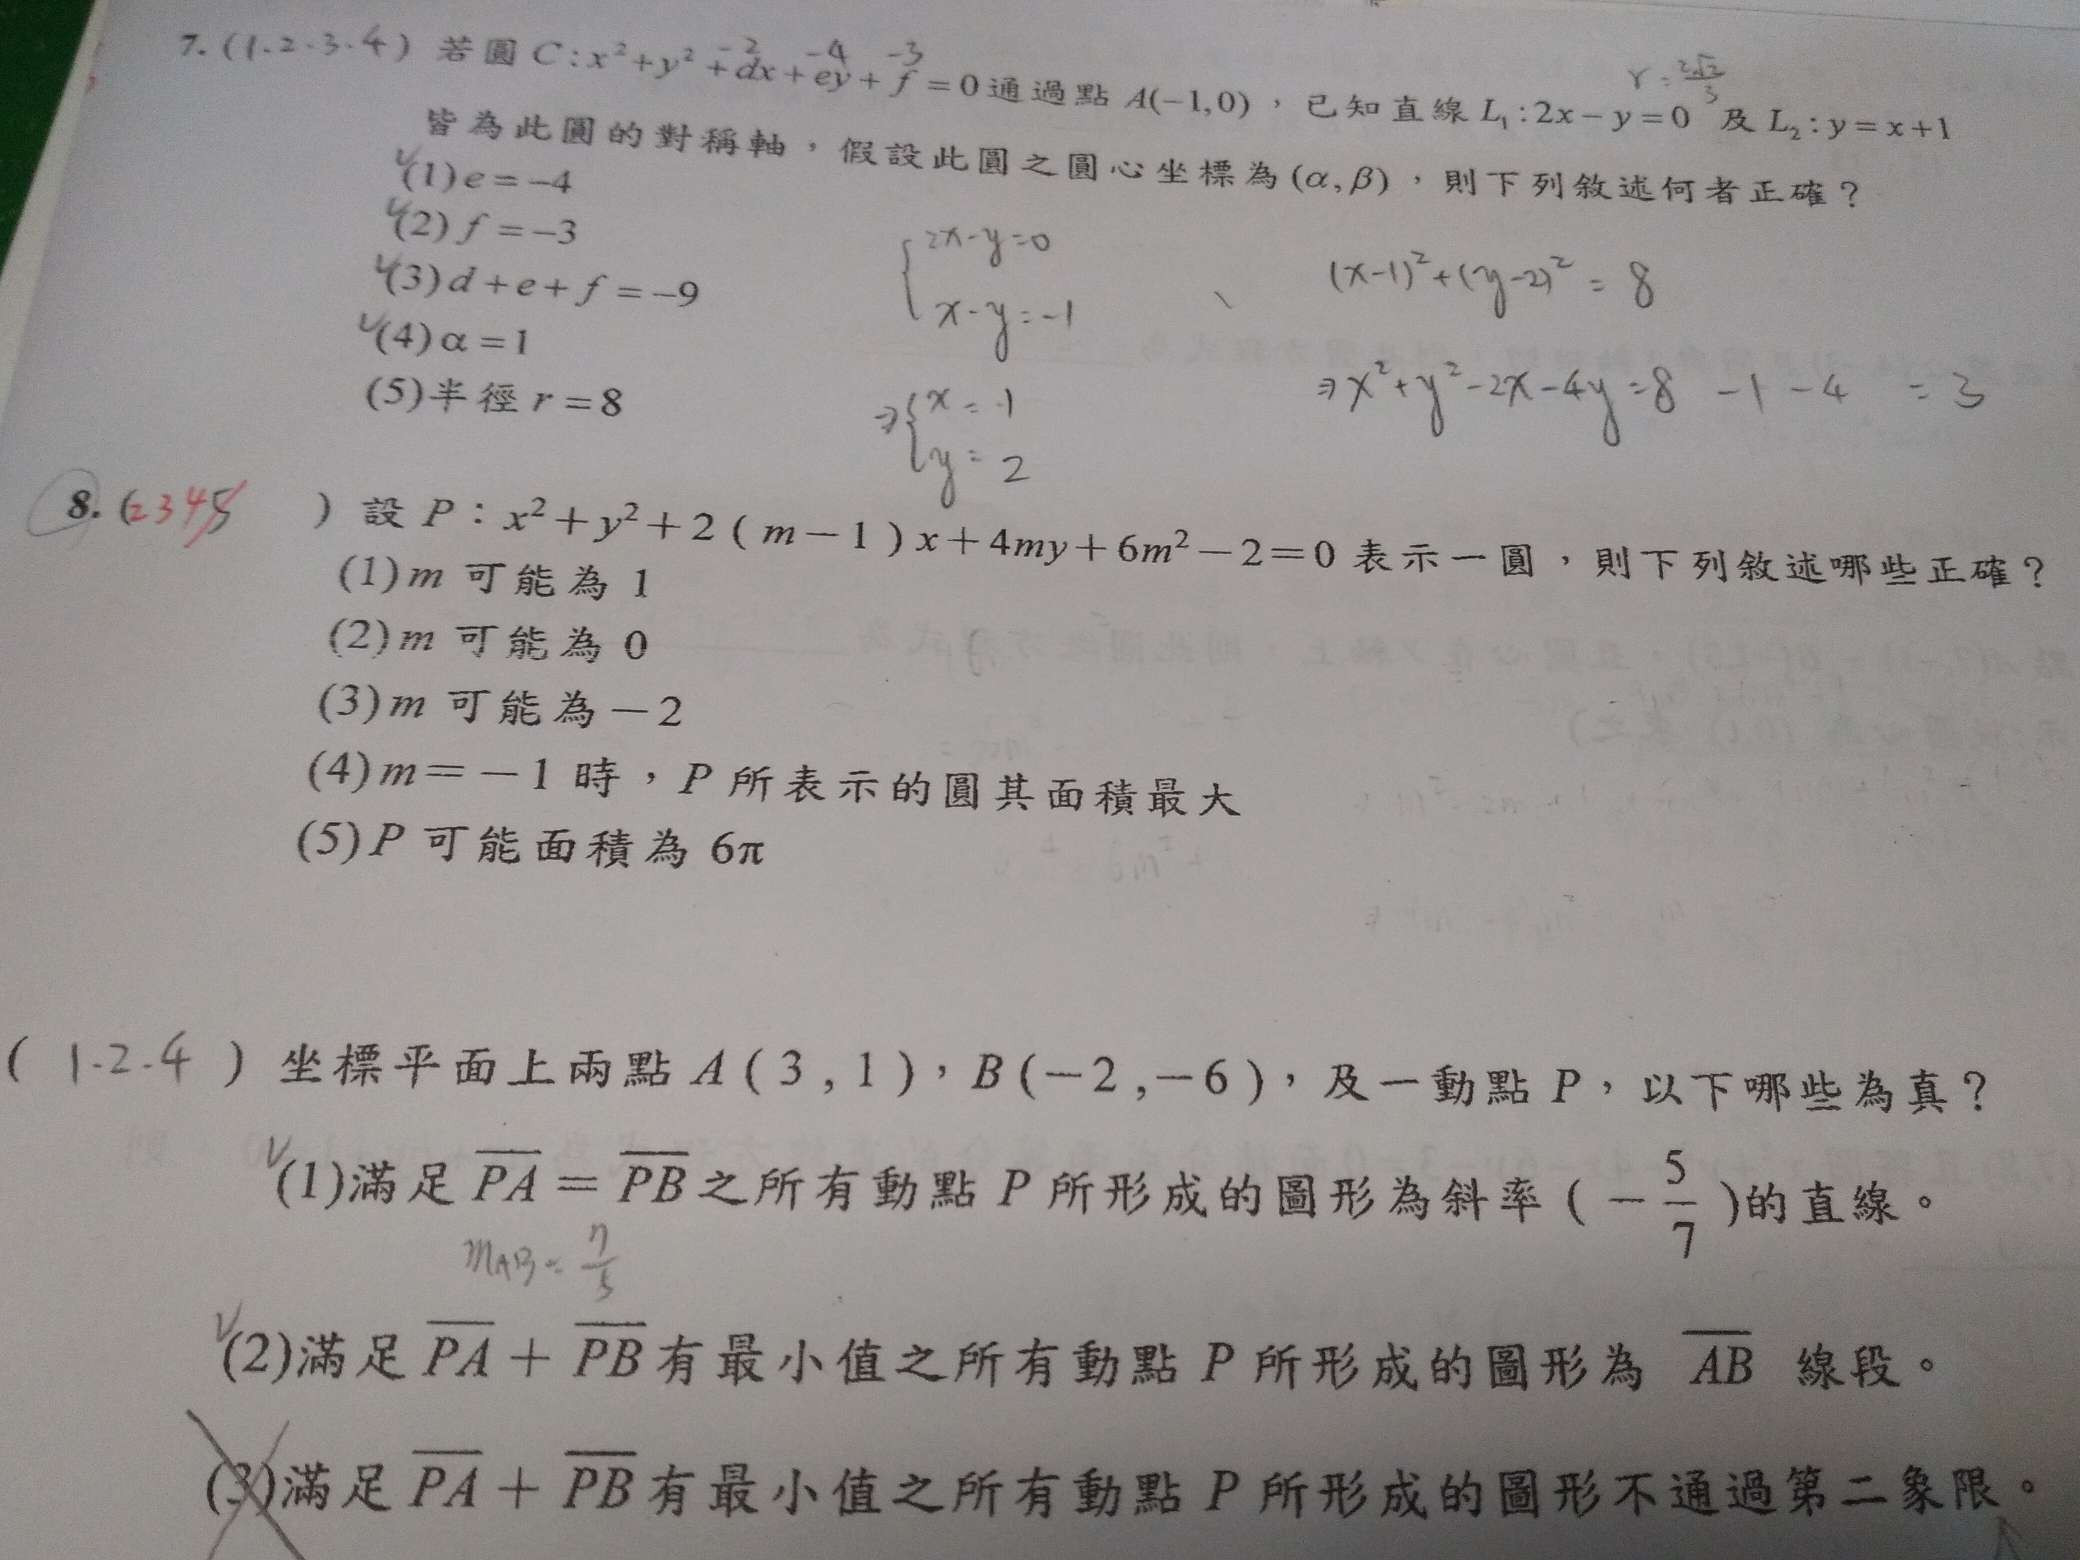 7. (1.2.3.4) 若圓 C:x²+y²+dx+ey+f=0通過點 A(−1,0)，已知直線 L₁:2x−y=0 及 L₂:y=x+1
-2 -4 -3
r=2√2
皆為此圓的對稱軸，假設此圓之圓心坐標為(α,β)，則下列敘述何者正確？
(1)e=−4
(2)f=−3
(3)d+e+f=−9
(4)α=1
(5)半徑r=8
2x-y=0
x-y=-1
⇒ x=1
y=2
(x-1)²+(y-2)²=8
⇒x²+y²-2x-4y=8-1-4 =3
8. (2345) 設 P：x²+y²+2(m−1)x+4my+6m²−2=0 表示一圓，則下列敘述哪些正確？
(1)m 可能為 1
(2)m 可能為 0
(3)m 可能為−2
(4)m=−1 時，P 所表示的圓其面積最大
(5)P 可能面積為 6π
( 1.2.4 ) 坐標平面上兩點 A(3,1)，B(−2,−6)，及一動點 P，以下哪些為真？
(1)滿足 PA=PB之所有動點 P 所形成的圖形為斜率(−5/7)的直線。
mAB=7/5
(2)滿足PA+PB有最小值之所有動點 P 所形成的圖形為 AB 線段。
(3)滿足PA+PB有最小值之所有動點 P 所形成的圖形不通過第二象限。